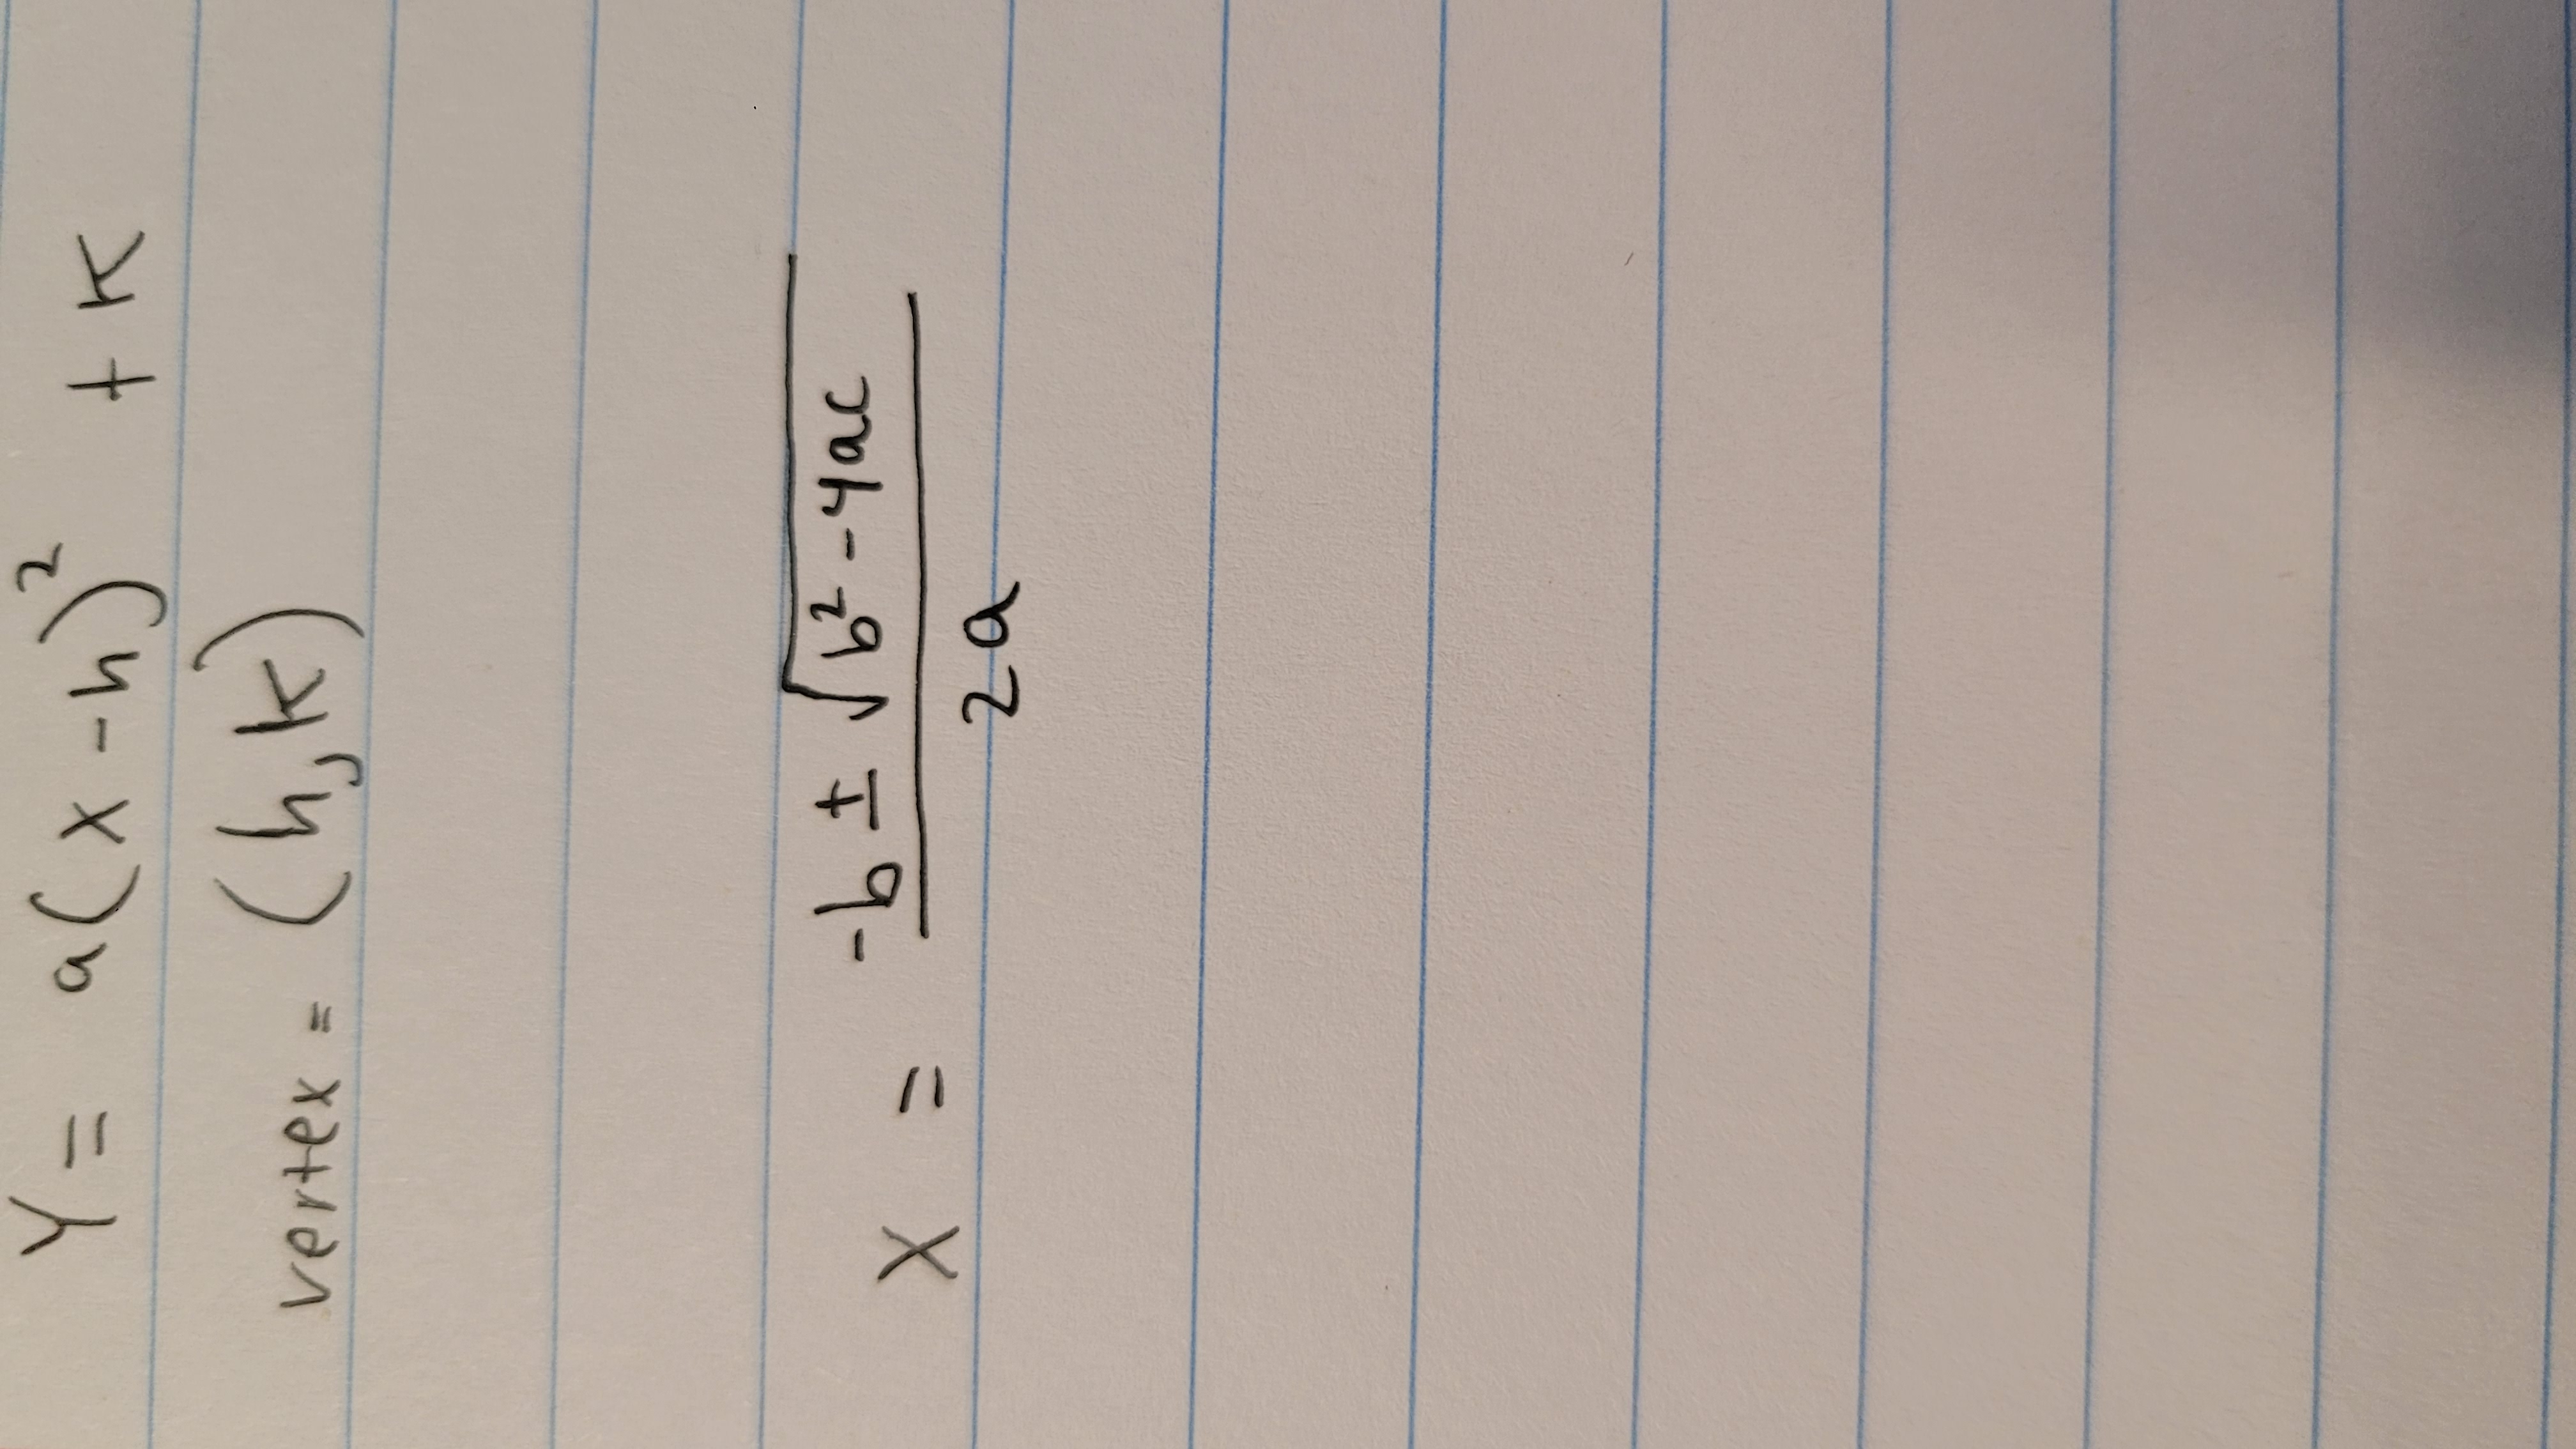 Y = a(x-h)² + K
vertex = (h,K)
X = -b ± √b² - 4ac / 2a